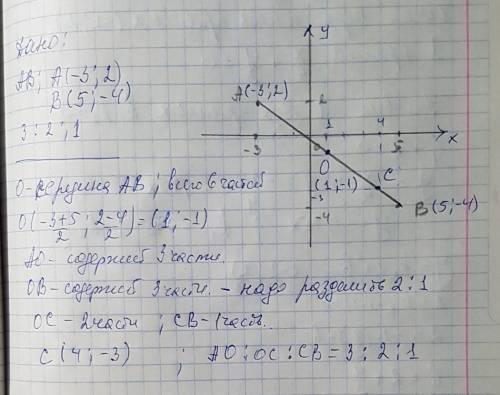 Дано:
AB; A(-3; 2)
B(5; -4)
3:2:1
O - середина AB; всего 6 частей
O(-3+5/2; 2-4/2) = (1; -1)
AO - содержит 3 части.
OB - содержит 3 части. - надо разделить 2:1
OC - 2 части; CB - 1 часть.
C(4; -3) ; AO:OC:CB = 3:2:1
y
A(-3; 2)
2
1
4
5
-3
0
x
O
(1; -1)
C
-3
-4
B(5; -4)